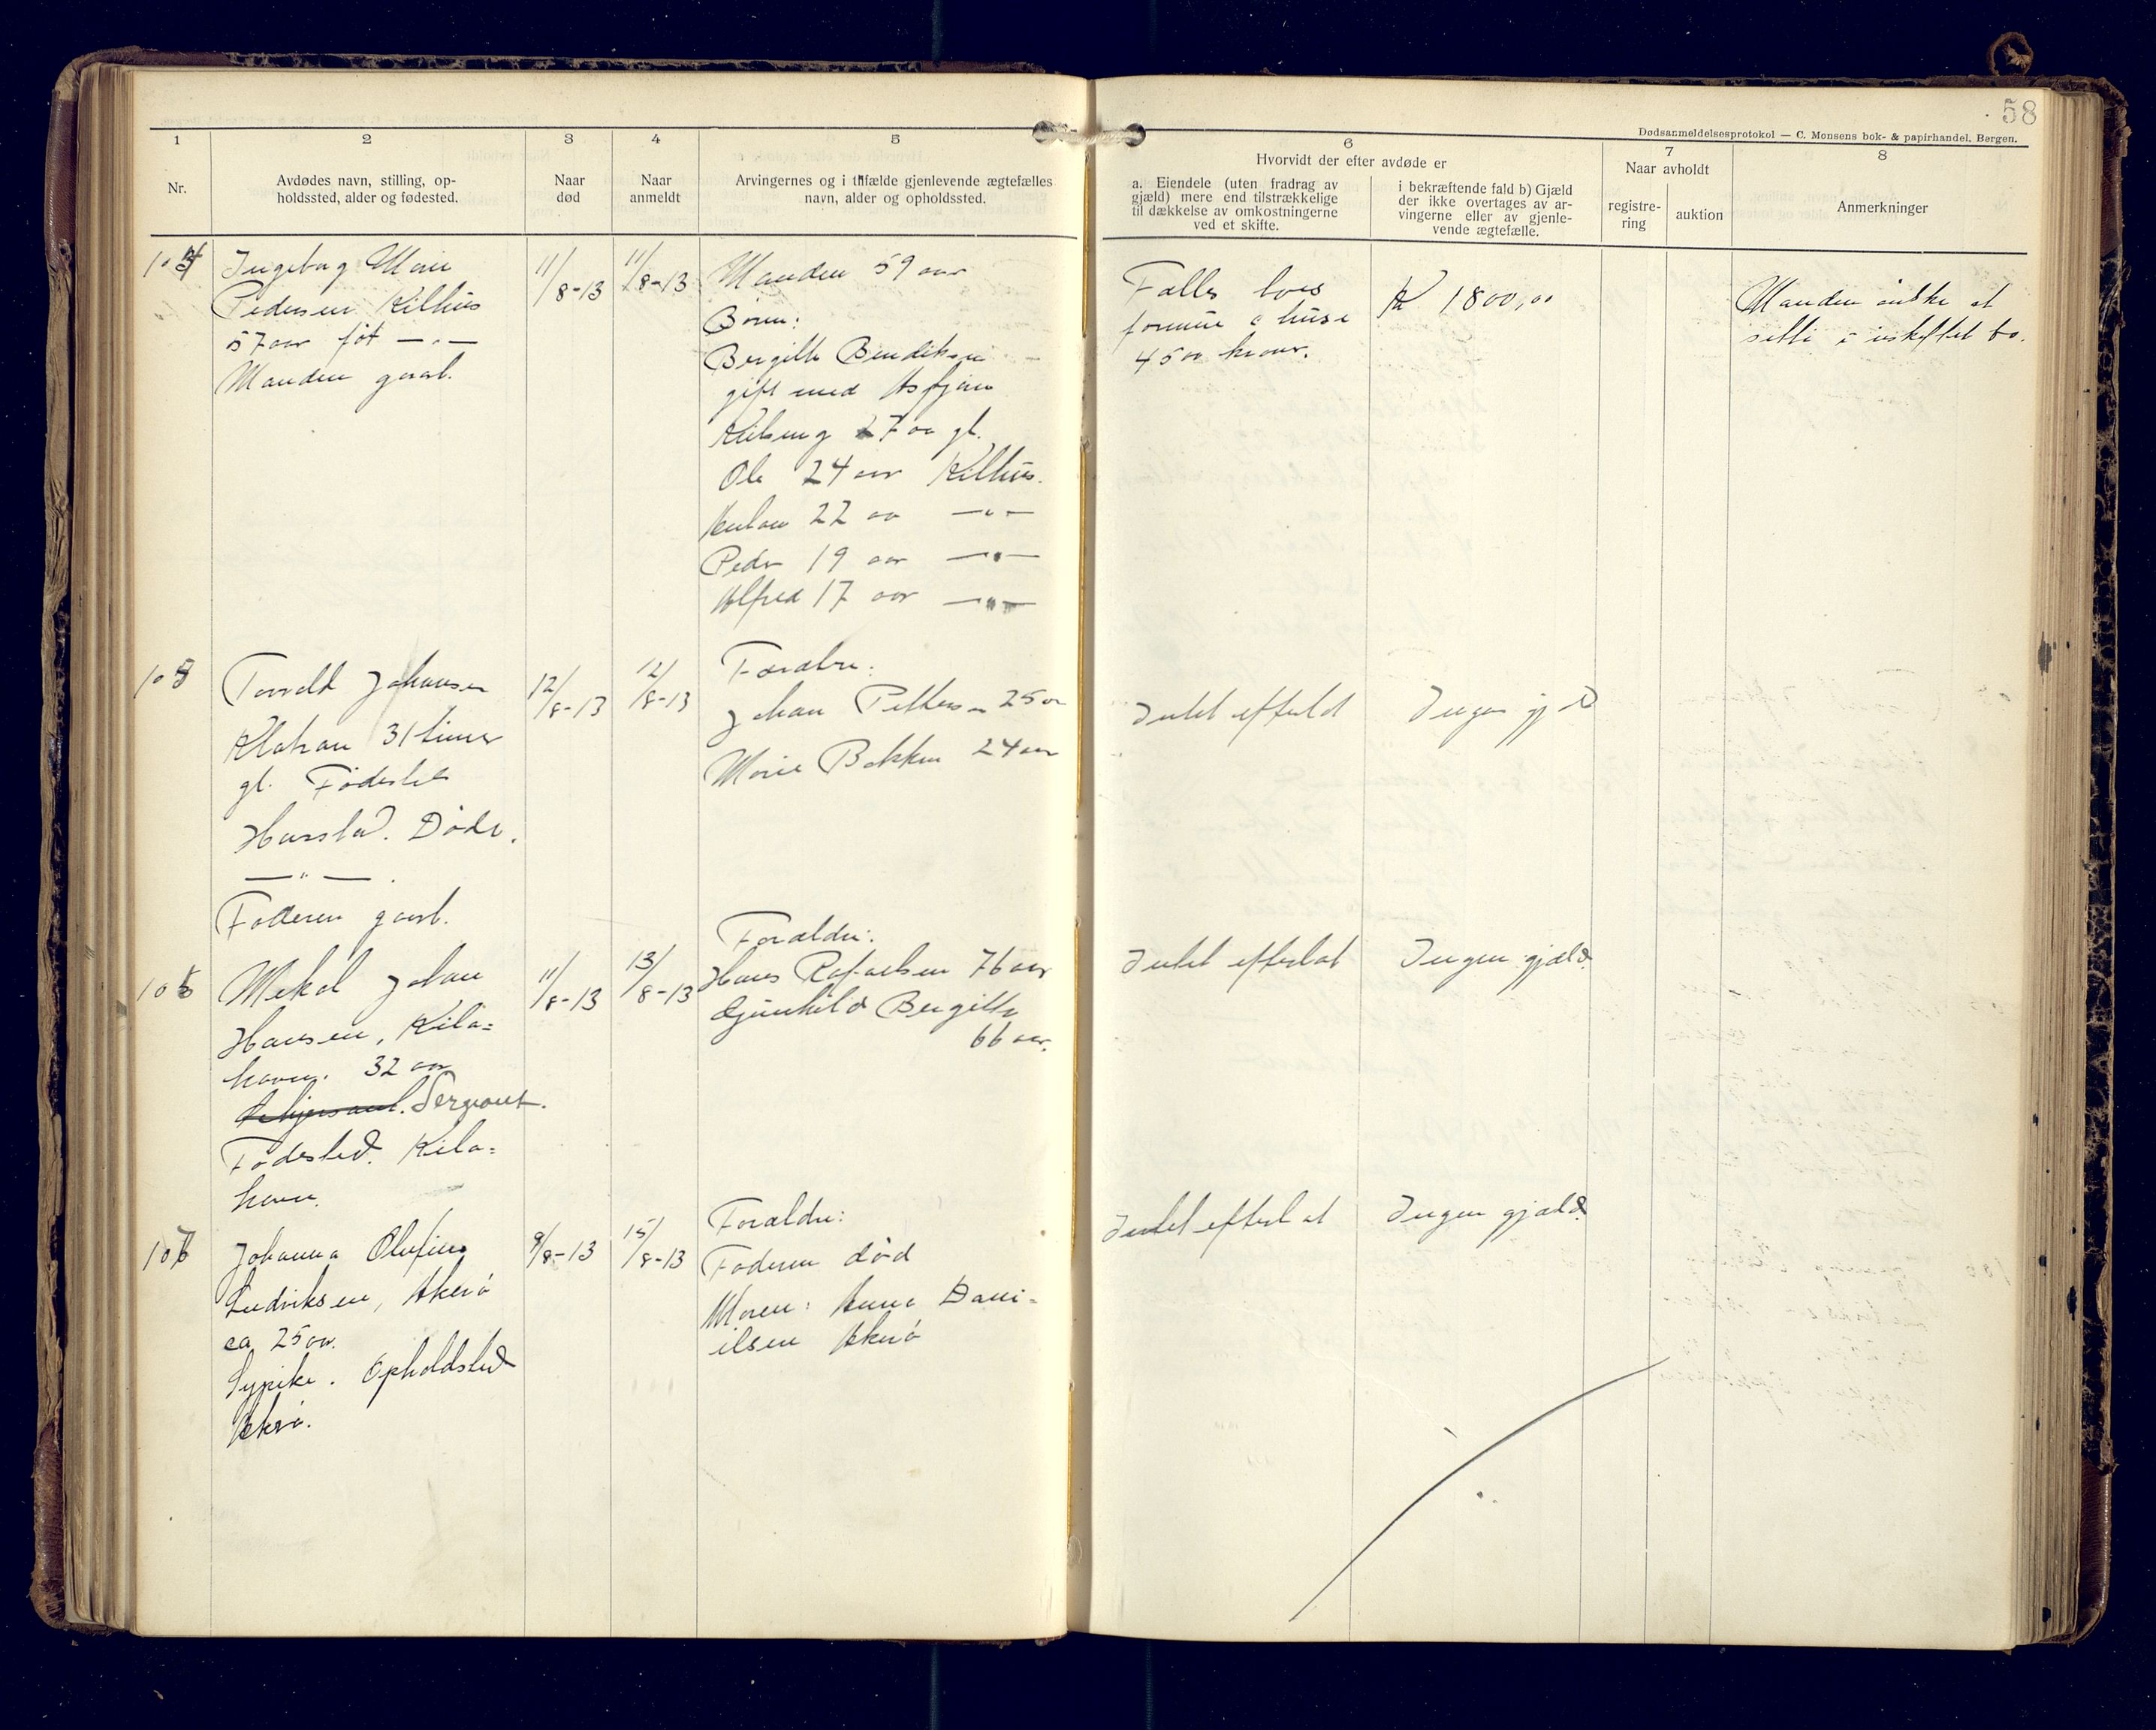 58
Dødsanmeldelsesprotokol — C. Monsens bok- & papirhandel, Bergen.
1
2
3
4
5
6
7
8
Nr.
Avdødes navn, stilling, op-
holdssted, alder og fødested.
Naar
død
Naar
anmeldt
Arvingernes og i tilfælde gjenlevende ægtefælles
navn, alder og opholdssted.
Hvorvidt der efter avdøde er
a. Eiendele (uten fradrag av
gjæld) mere end tilstrækkelige
til dækkelse av omkostningerne
ved et skifte.
i bekræftende fald b) Gjæld
der ikke overtages av ar-
vingerne eller av gjenle-
vende ægtefælle.
Naar avholdt
registre-
ring
auktion
Anmerkninger
Ingeborg Marie
Pedersen Kilhus
57 aarføt — " —
Manden gaarb.
11/8-13
11/8-13
Manden 59 aar
Børn:
Bergitte Bendiksen
gift med Asbjørn
27 aar gl.
Ole 24 aar Kilhus.
22 aar — " —
Peder 19 aar — " —
Alfred 17 aar — " —
Fælles boes
formue i huse
4500 kroner.
Kr 1800,00
Manden ønske at
sitte i uskiftet bo.
105
Johansen
31 timer
gl. Fødested
Harstad. Døde.
— " — .
Faderen gaarb.
12/8-13
12/8-13
Forældre:
Johan Pettersen 25 aar
Marie Bakken 24 aar
Intet efterlat
Ingen gjæld
Mekal Johan
Hansen, Kila=
havn. 32 aar
Sergeant.
Fødested. Kila=
havn.
11/8-13
13/8-13
Forældre:
Hans Rafaelsen 76 aar
Gunhild Bergitte
66 aar.
Intet efterlat
Ingen gjæld.
Johanna Olufine
Ludviksen, Akerø
ca 25 aar.
Sypike. Opholdsted
Akerø.
9/8-13
15/8-13
Forældre:
Faderen død
Moren: Anna Dani-
elsen Akerø
Intet efterlat
Ingen gjæld.